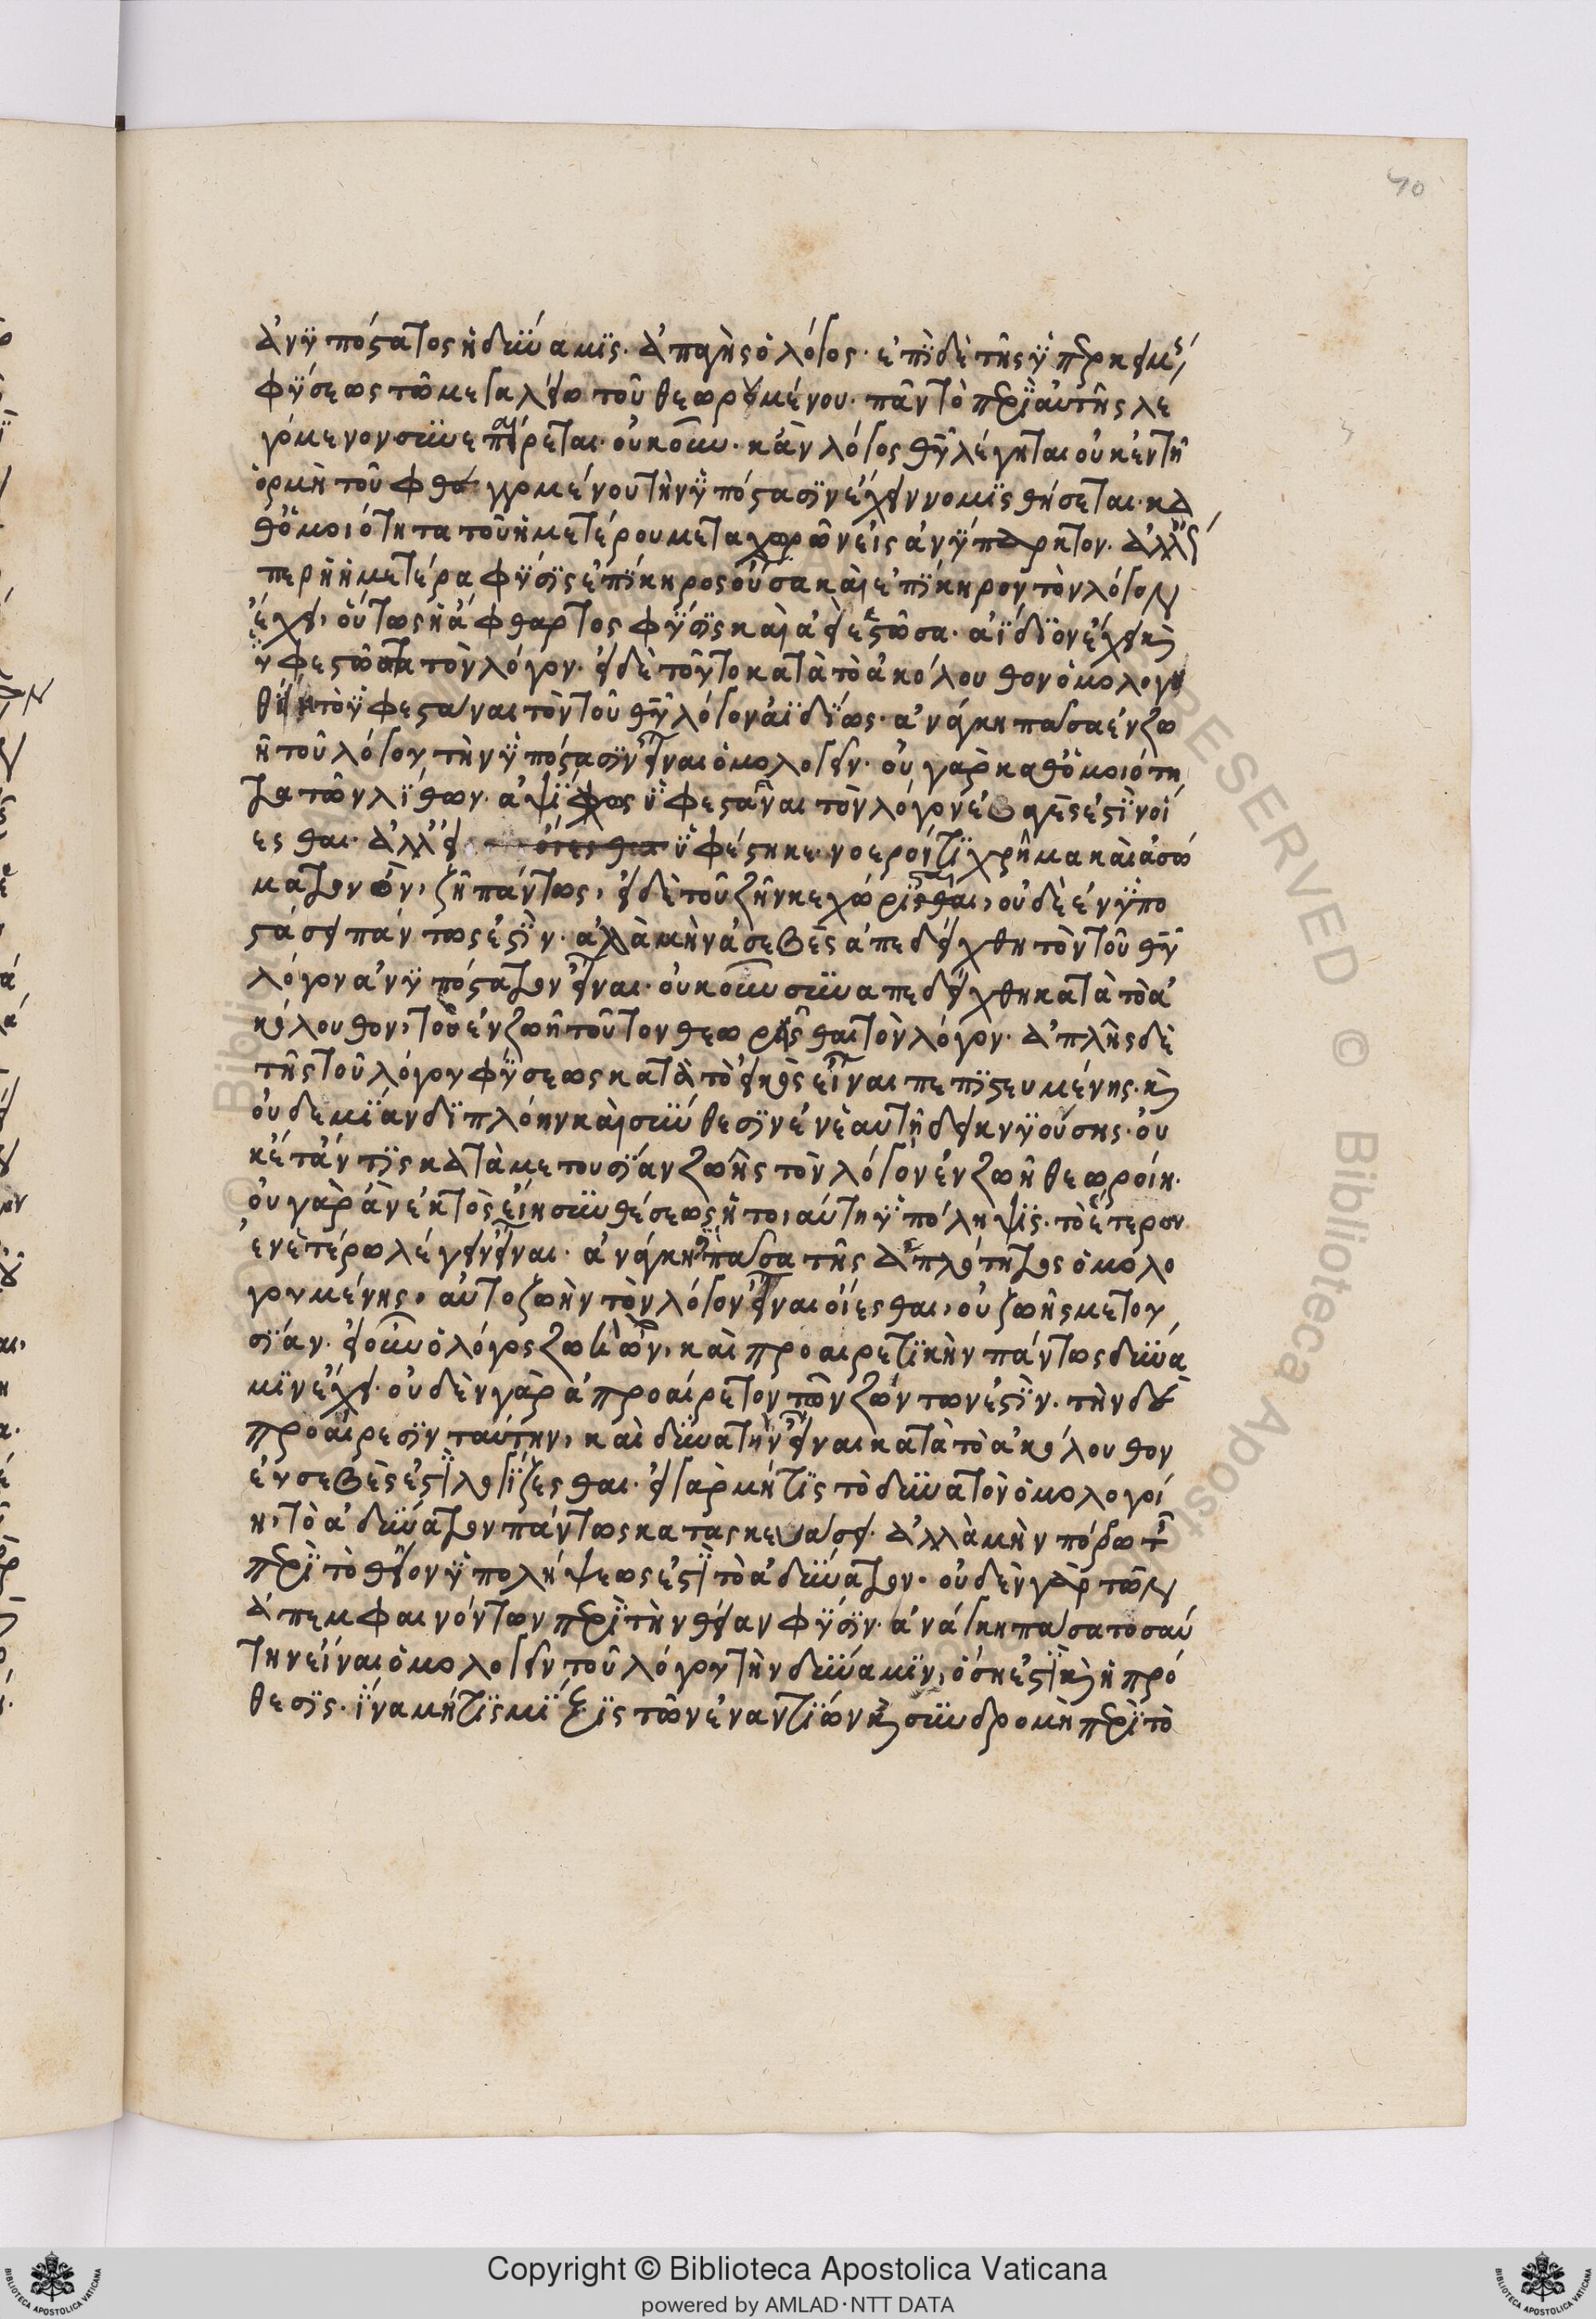 ἀνϋπόστατος ἡ δύναμϊς· ἀπαγὴς ὁ λόγος· ἐπὶ δὲ τῆς ϋπερκειμένης
φύσεως τῶ μεγαλείω τοῦ θεωρουμένου· πᾶν τὸ περὶ αὐτῆς λε
γόμενον συνεπαίρεται· οὐκοῦν· κἂν λόγος θῦ λέγηται οὐκ ἐν τῆ
ὁρμῆ τοῦ φθεγγομένου τὴν ϋπόστασϊν ἔχειν νομϊσθήσεται· κα
θ' ὁμοιότητα τοῦ ἡμετέρου μεταχωρῶν εἰς ἀνϋπαρκτον. ἀλλ' ὥς
περ ἡ ἡμετέρα φύσϊς ἐπΐκηρος οὖσα καὶ ἐπΐκηρον τὸν λόγον
ἔχει, οὕτως ἡ ἄφθαρτος φύσϊς καὶ ἀεὶ ἑστῶσα· ἀΐδϊον ἔχει καὶ
ϋφεστῶτα τὸν λόγον· εἰ δὲ τοῦτο κατὰ τὸ ἀκόλουθον ὁμολογη
θείη τὸ ϋφεστάναι τὸν τοῦ θῦ λόγον ἀϊδΐως· ἀνάγκη πᾶσα ἐν ζω
ῆ τοῦ λόγου τὴν ϋπόστασϊν εἶναι ὁμολογεῖν· οὐ γὰρ καθ' ὁμοιότη
τα τῶν λΐθων· ἀψΰχως ϋφεστάναι τὸν λόγον εὐαγές ἐστὶν οἴ
εσθαι· ἀλλ' εἰ ὑφέστηκε· νοερόν τϊ χρῆμα καὶ ἀσώ
ματον ὂν, ζῆ πάντως, εἰ δὲ τοῦ ζῆν κεχώρϊσται, οὐδὲ ἐν ϋπο
στάσει πάντως ἐστὶν· ἀλλὰ μὴν ἀσεβὲς ἀπεδείχθη τὸν τοῦ θῦ
λόγον ἀνϋπόστατον εἶναι· οὐκοῦν συναπεδείχθη κατὰ τὸ ἀ
κόλουθον, τὸ ἐν ζωῆ τοῦτον θεωρεῖσθαι τὸν λόγον· ἁπλῆς δὲ
τῆς τοῦ λόγου φύσεως κατὰ τὸ εἰκὸς εἶναι πεπϊστευμένης· καὶ
οὐδεμΐαν δϊπλόην καὶ σύνθεσϊν ἐν ἑαυτῆ δεικνϋούσης· οὐ
κέτ' ἄν τϊς κατὰ μετουσΐαν ζωῆς τὸν λόγον ἐν ζωῆ θεωροίη·
οὐ γὰρ ἂν ἐκτὸς εἴη συνθέσεως ἡ τοιαύτη ϋπόληψϊς· τὸ ἕτερον
ἐν ἑτέρω λέγειν εἶναι· ἀνάγκη πᾶσα τῆς ἁπλότητος ὁμολο
γουμένης, αὐτοζωὴν τὸν λόγον εἶναι οἴεσθαι, οὐ ζωῆς μετου
σΐαν· εἰ οὖν ὁ λόγος ζωὴ ὢν, καὶ προαιρετϊκὴν πάντως δύνα
μϊν ἔχει· οὐδὲν γὰρ ἀπροαίρετον τῶν ζώντων ἐστὶν. τὴν δὲ
προαίρεσϊν ταύτην, καὶ δυνατὴν εἶναι κατὰ τὸ ἀκόλουθον
εὐσεβὲς ἐστὶ λογίζεσθαι· εἰ γὰρ μή τϊς τὸ δυνατὸν ὁμολογοί
η, τὸ ἀδύνατον πάντως κατασκευάσει· ἀλλὰ μὴν πόρρω τῆς
περὶ τὸ θεῖον ϋπολήψεως ἐστὶ τὸ ἀδύνατον· οὐδὲν γὰρ τῶν
ἀπεμφαινόντων περὶ τὴν θείαν φύσϊν· ἀνάγκη πᾶσα τοσαύ
την εἶναι ὁμολογεῖν τοῦ λόγου τὴν δύναμϊν, ὅση ἐστὶ καὶ ἡ πρό
θεσϊς· ἵνα μή τϊς μΐξϊς τῶν ἐναντϊων καὶ συνδρομὴ περὶ τὸ